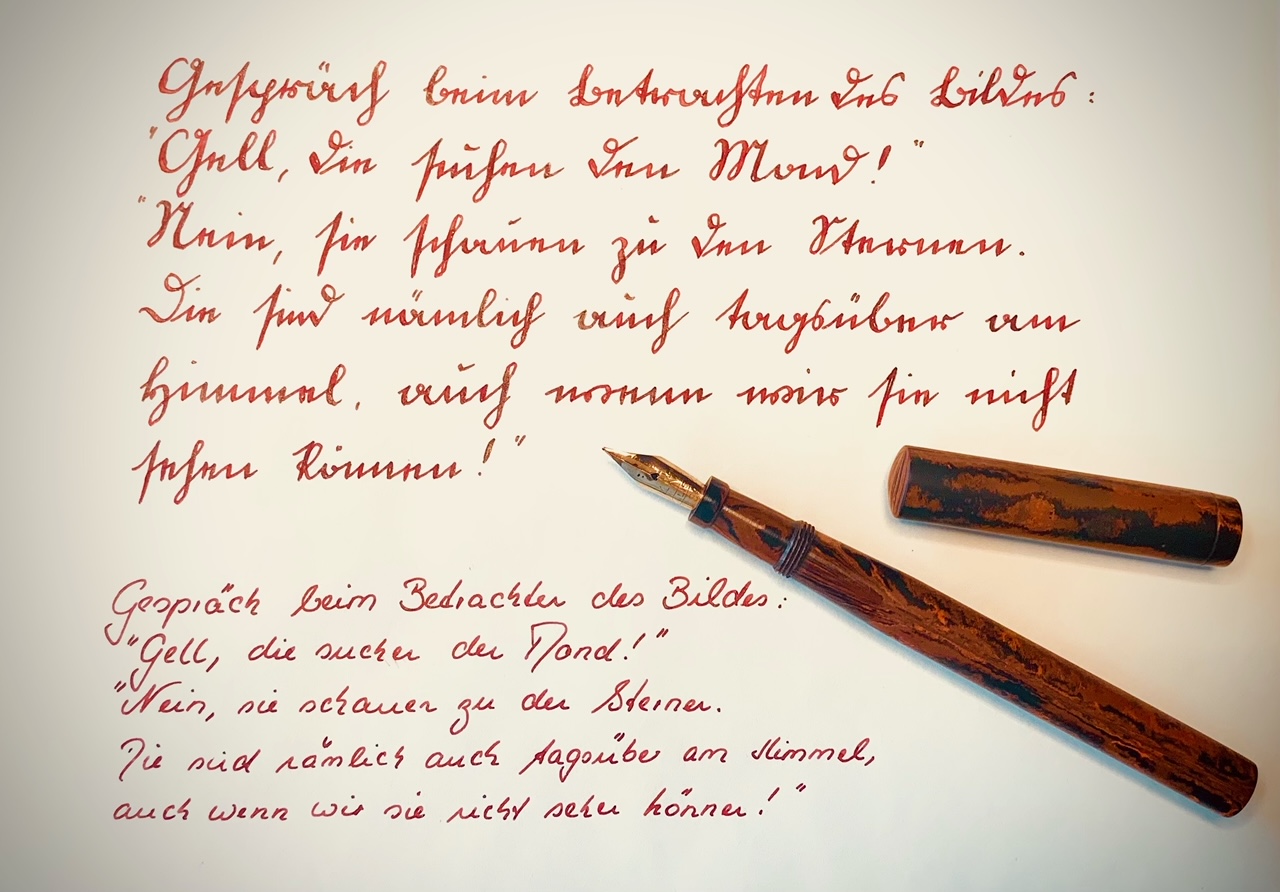 Gespräch beim Betrachten des Bildes:
"Gell, die suchen den Mond!"
"Nein, sie schauen zu den Sternen.
Die sind nämlich auch tagsüber am
Himmel, auch wenn wir sie nicht
sehen können!"
Gespräch beim Betrachten des Bildes:
"Gell, die suchen den Mond!"
"Nein, sie schauen zu den Sternen.
Die sind nämlich auch tagsüber am Himmel,
auch wenn wir sie nicht sehen können!"